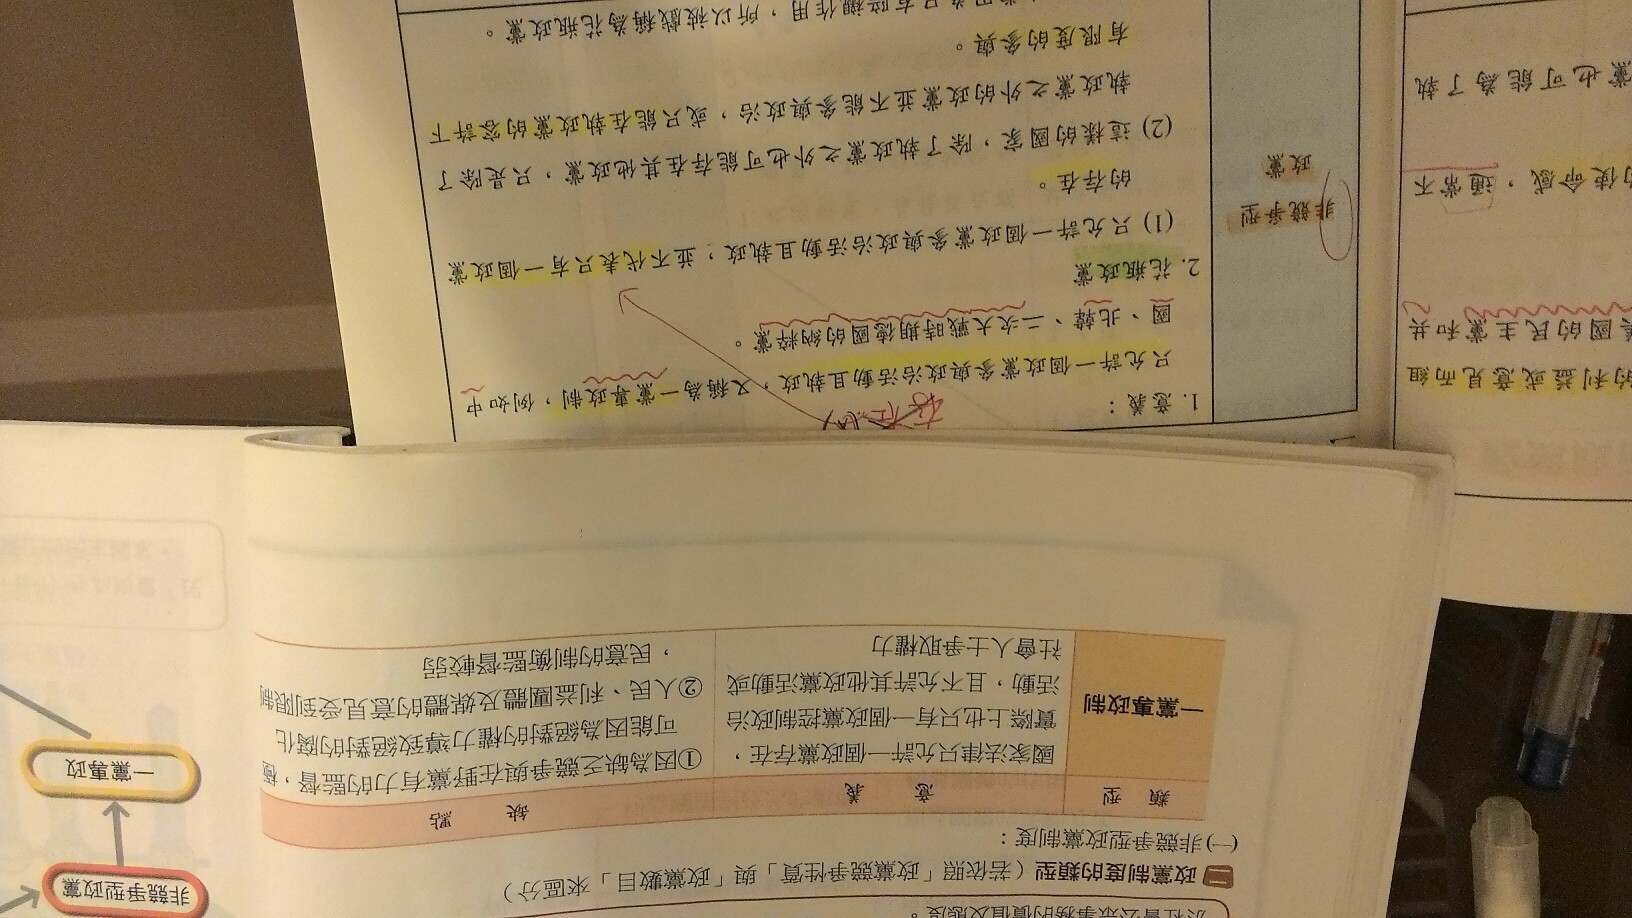 非競爭型
政黨
1. 意義：
只允許一個政黨參與政治活動且執政，又稱為一黨專政制，例如中
國、北韓、二次大戰時期德國的納粹黨。
2. 花瓶政黨
(1) 只允許一個政黨參與政治活動且執政，並不代表只有一個政黨
的存在。
(2) 這樣的國家，除了執政黨之外也可能存在其他政黨，只是除了
執政黨之外的政黨並不能參與政治，或只能在執政黨的容許下
有限度的參與。
作用，所以被戲稱為花瓶政黨。
的利益或意見而組
美國的民主黨和共
的使命感，通常不
黨也可能為了執
社會公眾事務的價值及態度。
二 政黨制度的類型（若依照「政黨競爭性質」與「政黨數目」來區分）
(一)非競爭型政黨制度：
類 型
意 義
缺 點
一黨專政制
國家法律只允許一個政黨存在，
實際上也只有一個政黨控制政治
活動，且不允許其他政黨活動或
社會人士爭取權力
①因為缺乏競爭與在野黨有力的監督，極
可能因為絕對的權力導致絕對的腐化
②人民、利益團體及媒體的意見受到限制
，民意的制衡監督較弱
非競爭型政黨
一黨專政